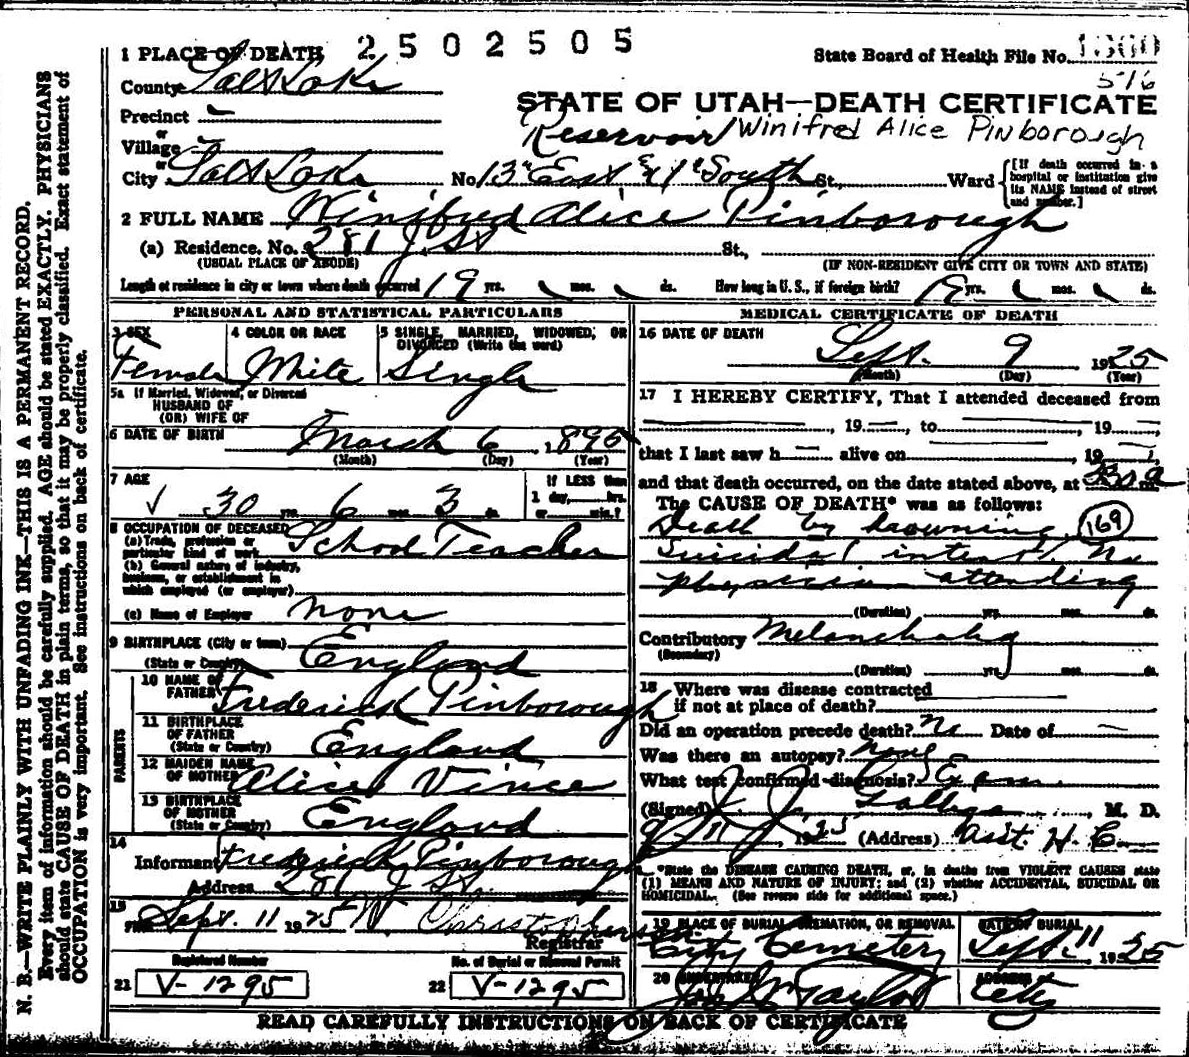 1 PLACE OF DEATH 2502505 State Board of Health File No. 1360
County Salt Lake 516
STATE OF UTAH—DEATH CERTIFICATE
Precinct —
Reservoir / Winifred Alice Pinborough
or
Village —
or
City Salt Lake No. 13th East & 11th South St., Ward [If death occurred in a hospital or institution give its NAME instead of street and number.]
2 FULL NAME Winifred Alice Pinborough
(a) Residence. No. 281 J St St.,
(USUAL PLACE OF ABODE) (IF NON-RESIDENT GIVE CITY OR TOWN AND STATE)
Length of residence in city or town where death occurred 19 yrs. mos. ds. How long in U. S., if foreign birth? 19 yrs. mos. ds.
PERSONAL AND STATISTICAL PARTICULARS
3 SEX
Female
4 COLOR OR RACE
White
5 SINGLE, MARRIED, WIDOWED, OR
DIVORCED (Write the word)
Single
5a If Married, Widowed, or Divorced
HUSBAND OF
(OR) WIFE OF
6 DATE OF BIRTH March 6, 1895
(Month) (Day) (Year)
7 AGE
30 yrs. 6 mos. 3 ds.
If LESS than
1 day, hrs.
or min.?
8 OCCUPATION OF DECEASED School Teacher
(a) Trade, profession or
particular kind of work
(b) General nature of industry,
business, or establishment in
which employed (or employer)
(c) Name of Employer none
9 BIRTHPLACE (City or town)
(State or Country) England
PARENTS
10 NAME OF
FATHER Frederick Pinborough
11 BIRTHPLACE
OF FATHER
(State or Country) England
12 MAIDEN NAME
OF MOTHER Alice Vince
13 BIRTHPLACE
OF MOTHER
(State or Country) England
14
Informant Frederick Pinborough
Address 281 J St.
15
Filed Sept. 11 1925 W. Christopherson
Registrar
Registered Number No. of Burial or Removal Permit
21 V-1295 22 V-1295
MEDICAL CERTIFICATE OF DEATH
16 DATE OF DEATH
Sept. 9 1925
(Month) (Day) (Year)
17 I HEREBY CERTIFY, That I attended deceased from
, 19 , to , 19 ,
that I last saw h alive on , 19 ,
and that death occurred, on the date stated above, at m.
The CAUSE OF DEATH* was as follows:
Death by drowning, 169
Suicidal intent. No
physician attending
(Duration) yrs. mos. ds.
Contributory Melancholy
(Secondary)
(Duration) yrs. mos. ds.
18 Where was disease contracted
if not at place of death?
Did an operation precede death? No Date of —
Was there an autopsy? none
What test confirmed diagnosis? Exam
(Signed) J. J. , M. D.
9/11 1925 (Address) Asst. H. C.
*State the DISEASE CAUSING DEATH, or, in deaths from VIOLENT CAUSES state
(1) MEANS AND NATURE OF INJURY; and (2) whether ACCIDENTAL, SUICIDAL OR
HOMICIDAL. (See reverse side for additional space.)
19 PLACE OF BURIAL, CREMATION, OR REMOVAL
City Cemetery
DATE OF BURIAL
Sept. 11 1925
20 UNDERTAKER
Jos Wm Taylor
ADDRESS
City
READ CAREFULLY INSTRUCTIONS ON BACK OF CERTIFICATE
N. B.—WRITE PLAINLY WITH UNFADING INK—THIS IS A PERMANENT RECORD.
Every item of information should be carefully supplied. AGE should be stated EXACTLY. PHYSICIANS
should state CAUSE OF DEATH in plain terms, so that it may be properly classified. Exact statement of
OCCUPATION is very important. See instructions on back of certificate.